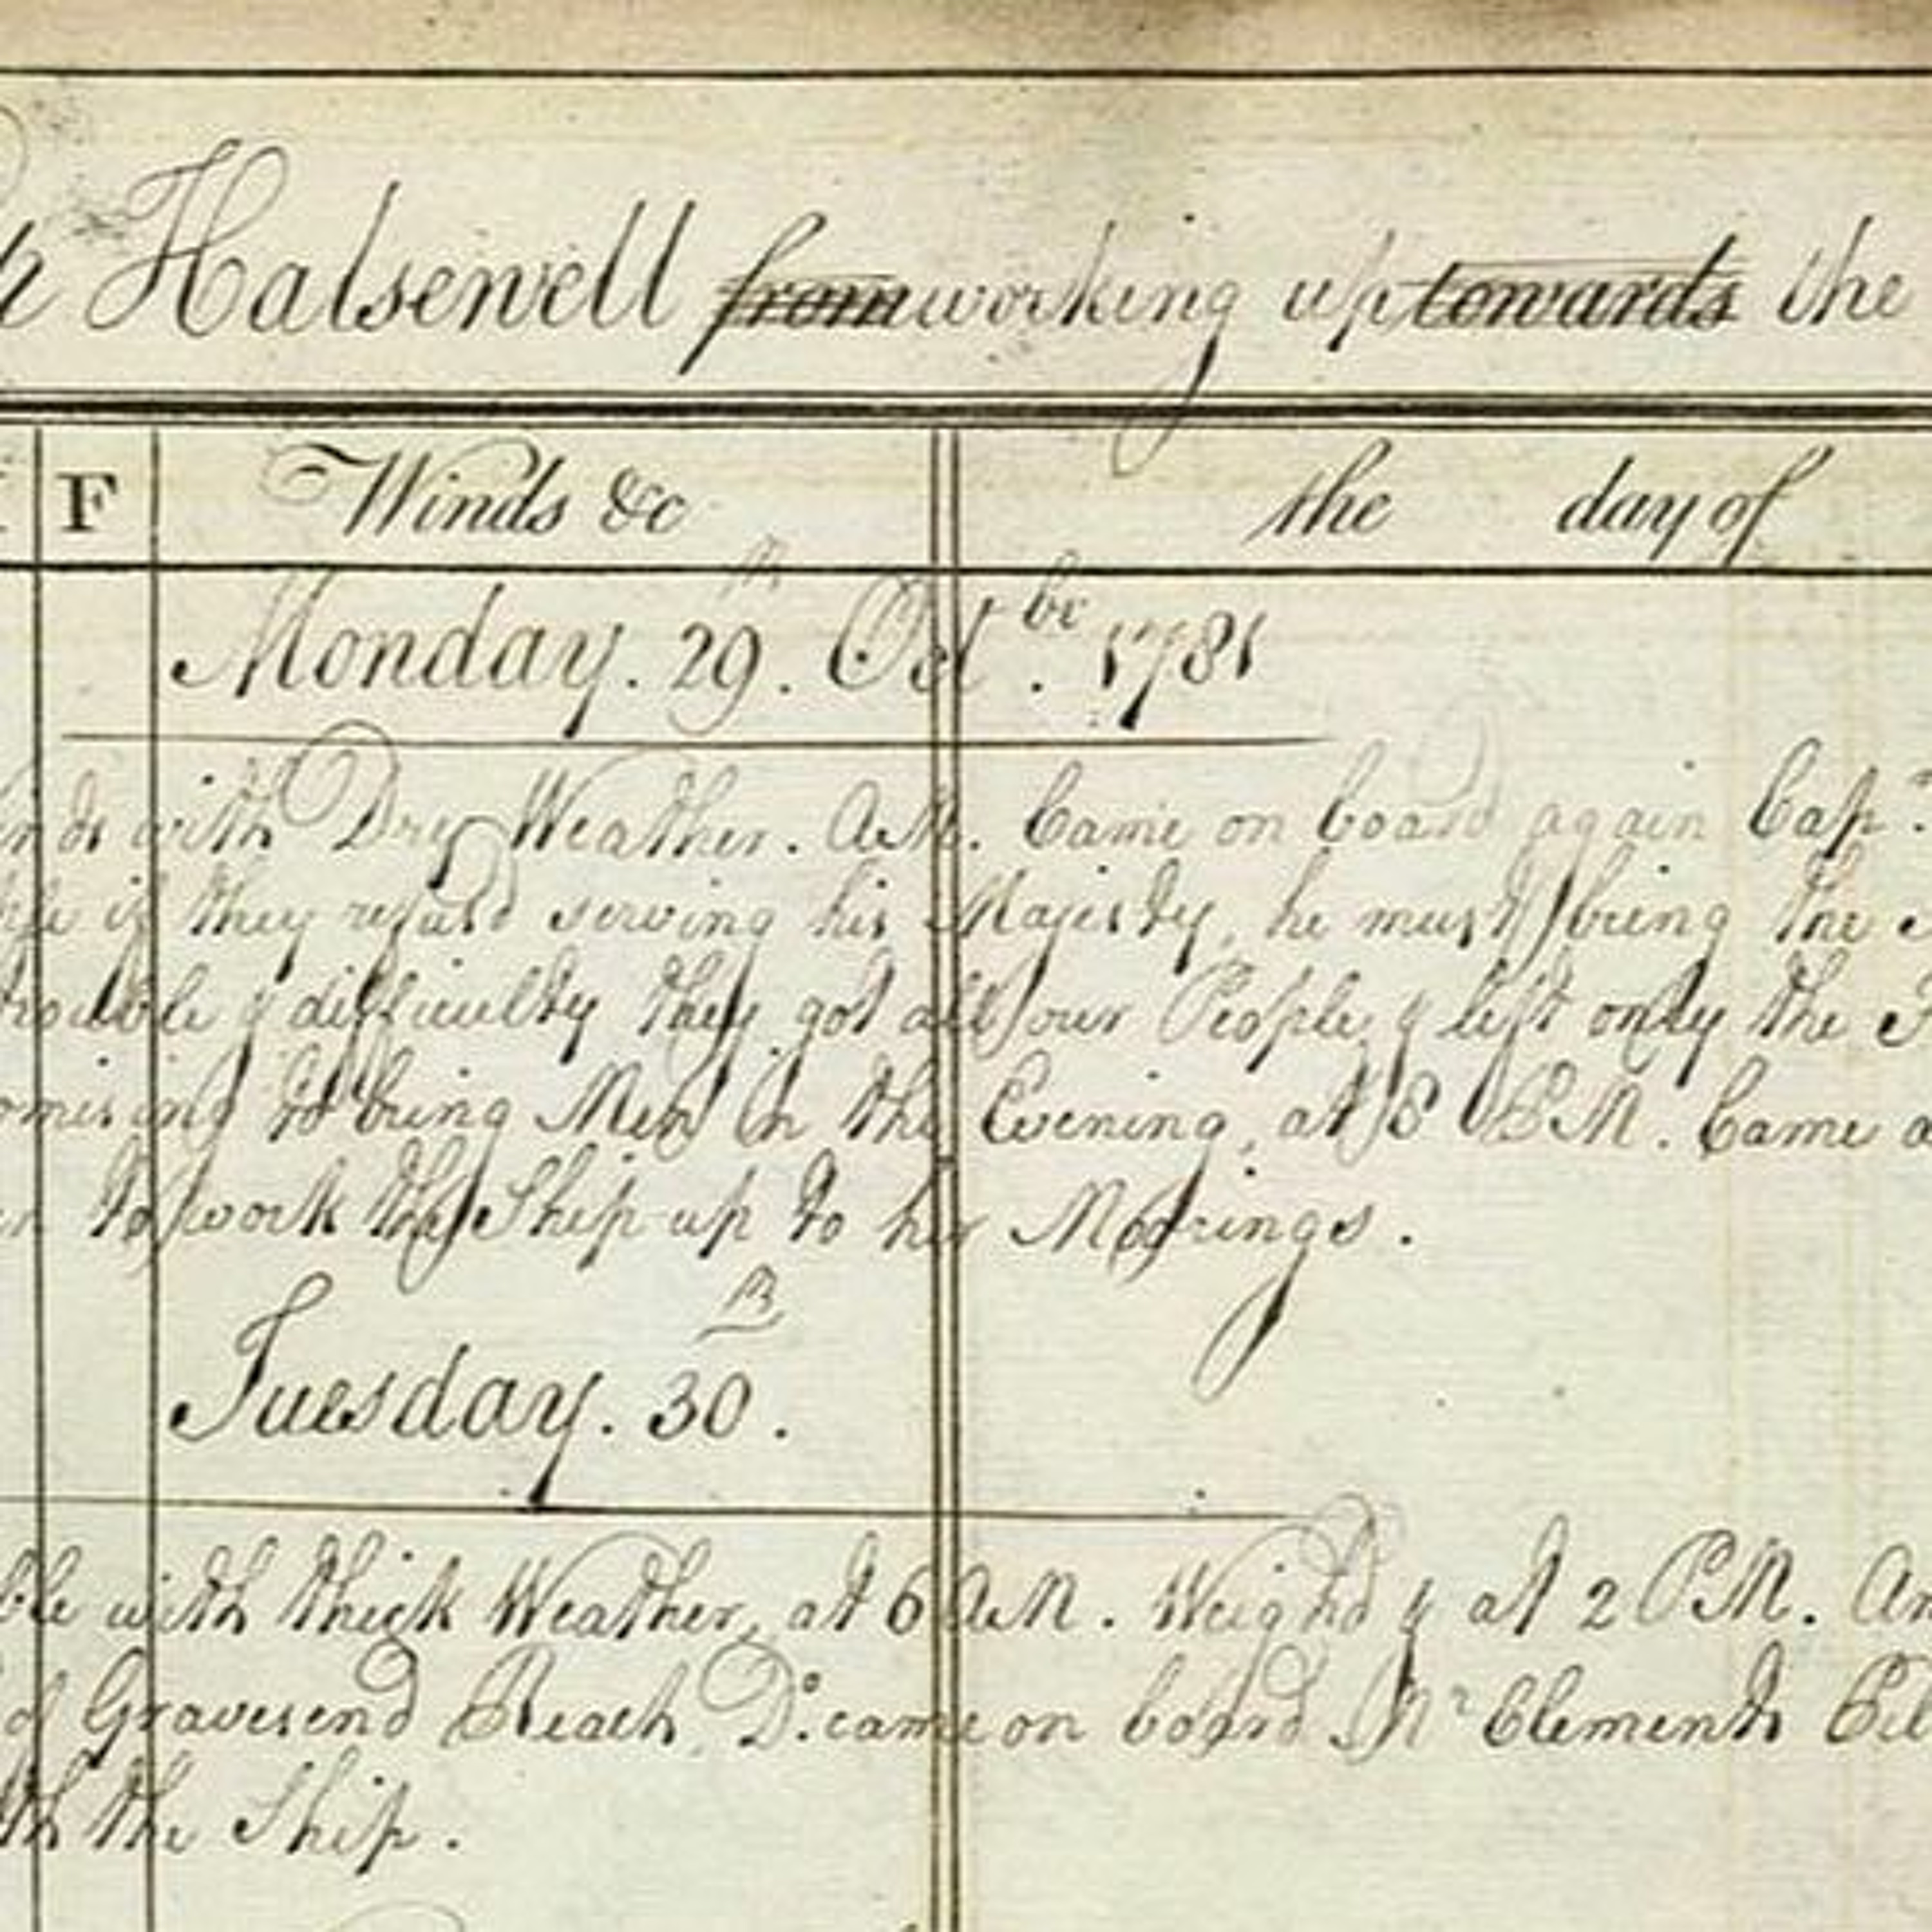 Halsewell from working up towards the
F Winds &c the day of
Monday. 29. Octbr. 1781
with Dry Weather. A.M. Came on board again Cap
if they refused serving his Majesty, he must bring the
trouble & difficulty they got all our People, & left only the
to bring Men in the Evening, at 8 P.M. Came
to work the Ship up to her Moorings.
Tuesday. 30.
with thick Weather, at 6 A.M. Weigh'd & at 2 P.M.
of Gravesend Reach, Do. came on board Mr Clements
the Ship.